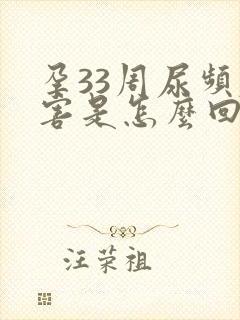 孕33周尿频
害是怎麼回
汪荣祖